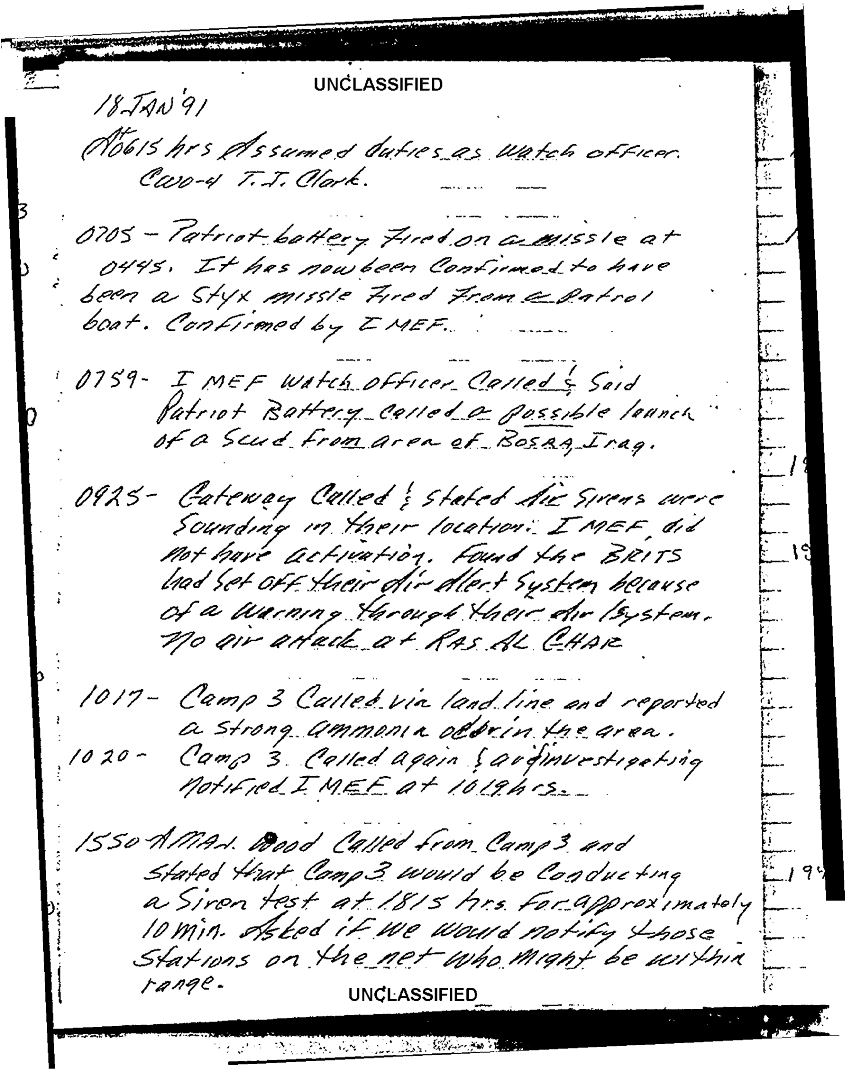 UNCLASSIFIED
18 JAN '91
At 0615 hrs Assumed duties as watch officer.
CWO-4 T.J. Clark.
0705 - Patriot battery Fired on a missle at
0445. It has now been Confirmed to have
been a Styx missle Fired From a Patrol
boat. Confirmed by I MEF.
0759 - I MEF watch officer Called & Said
Patriot Battery called a possible launch
of a Scud from area of BOSRA, Iraq.
0925 - Gateway Called & stated Air Sirens were
Sounding in their location. I MEF did
not have activation. Found the BRITS
had set off their Air Alert System because
of a warning through their Air System.
No air attack at RAS AL GHAR
1017 - Camp 3 Called via land line and reported
a strong ammonia odor in the area.
1020 - Camp 3 Called again & investigating
Notified I MEF at 1019 hrs.
1550 - A MAJ. Wood Called from Camp 3 and
stated that Camp 3 would be Conducting
a Siren test at 1815 hrs For approximately
10 min. Asked if we would notify those
Stations on the net who might be within
range.
UNCLASSIFIED